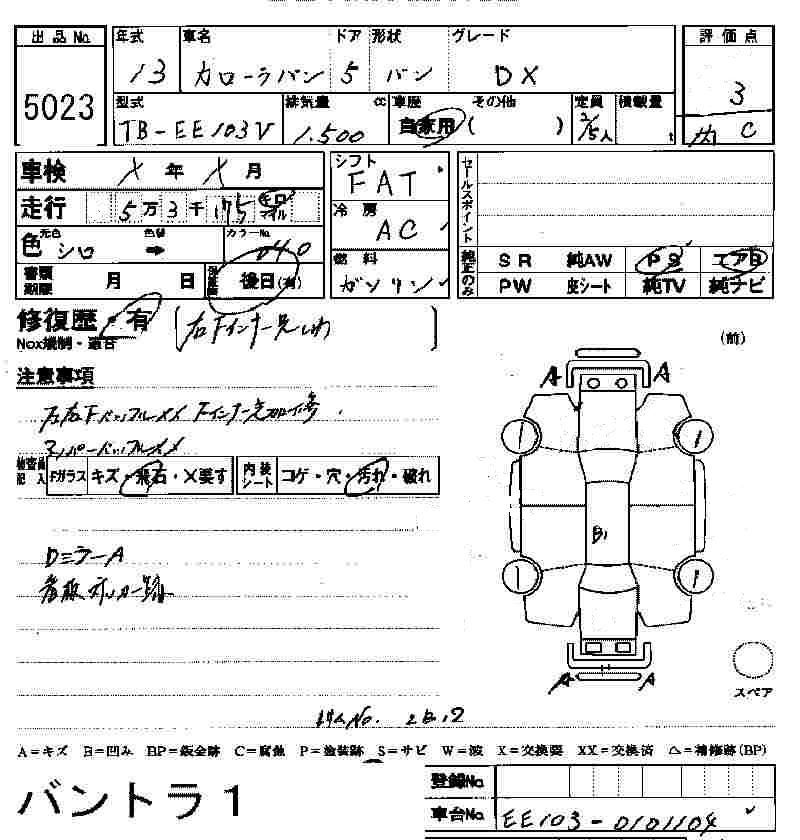 出品No. 年式 車名 ドア 形状 グレード 評価点
5023 13 カローラバン 5 バン DX 3
型式 排気量 cc 車歴 その他 定員 積載量
TB-EE103V 1.500 自家用 ( ) 2/5人 t 内 C
車検 X 年 X 月 シフト FAT セールスポイント
走行 5万3千175 キロ マイル 冷房 AC
色 元色 シロ 色替 ➡ カラーNo. 040 純正のみ SR 純AW PS エアB
書類期限 月 日 後日(有) 燃料 ガソリン PW 皮シート 純TV 純ナビ
修復歴・有
Nox規制・適合 (前)
注意事項
検査員記入 Fガラス キズ・飛石・X要す 内装シート コゲ・穴・汚れ・破れ
A A
1 1
B1
DミラーA
1 1
看板ステッカー跡
A A
スペア
リサイNo. 2812
A=キズ B=凹み BP=鈑金跡 C=腐蝕 P=塗装跡 S=サビ W=波 X=交換要 XX=交換済 △=補修跡(BP)
バントラ1 登録No.
車台No. EE103-0101104